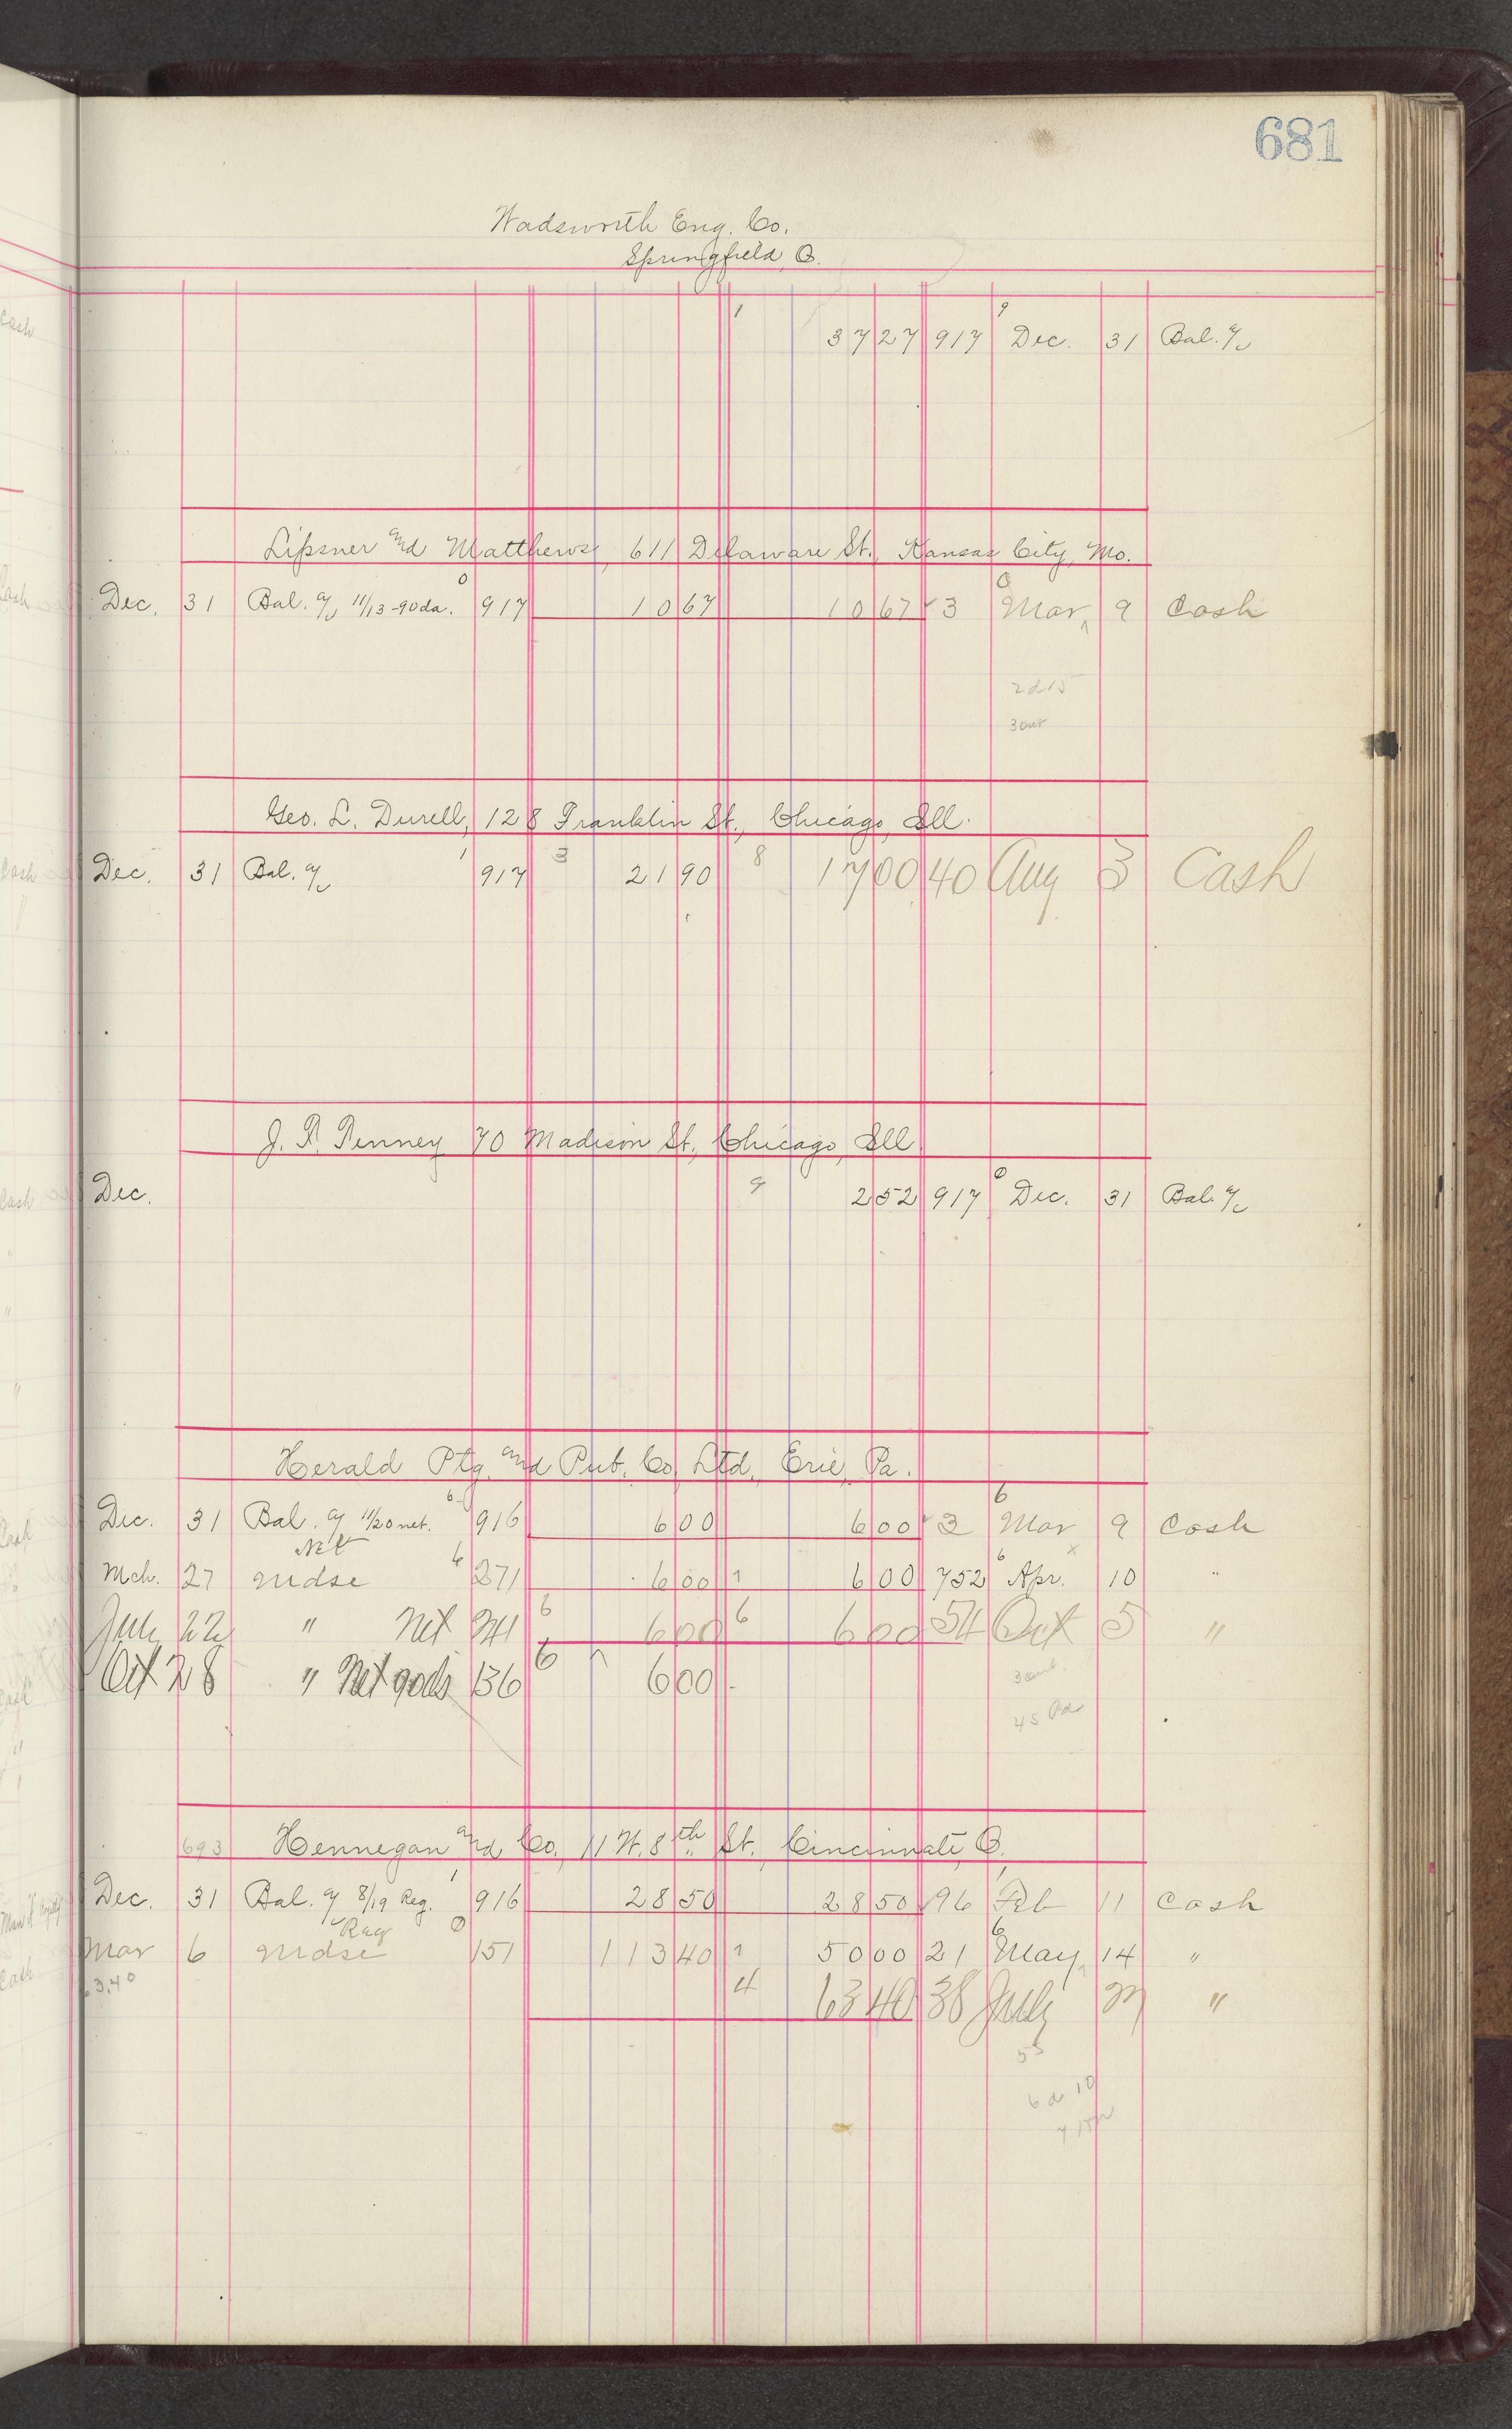 681
Wadsworth Eng. Co.
Springfield, O.
1 37 27 917 9 Dec. 31 Bal. a/c
Lipsner and Matthews, 611 Delaware St., Kansas City, Mo.
Dec. 31 Bal. a/c 11/13-90da. 0 917 10 67 10 67 3 0 Mar 9 Cash
2d15
Geo. L. Durell, 128 Franklin St., Chicago, Ill.
Dec. 31 Bal. a/c 1 917 3 21 90 8 17 00 40 Aug 3 Cash
J. P. Penney 70 Madison St., Chicago, Ill.
Dec. 9 2 52 917 0 Dec. 31 Bal. a/c
Herald Ptg. and Pub. Co. Ltd., Erie, Pa.
Dec. 31 Bal. a/c 11/20 net. 6 916 6 00 6 00 3 6 Mar 9 Cash
Net
Mch. 27 Mdse 6 271 6 00 1 6 00 752 6 Apr. 10 "
July 22 " Net 241 6 6 00 6 6 00 54 Oct 5 "
Oct 28 " Net goods 136 6 6 00
45 Pd
693 Hennegan and Co., 11 W. 8th St., Cincinnati, O.
Dec. 31 Bal. a/c 8/19 Reg. 1 916 28 50 28 50 96 Feb 11 Cash
Reg
Mar 6 Mdse 0 151 113 40 1 50 00 21 6 May 14 "
63.40 4 63 40 38 July 27 "
55
6 a 10